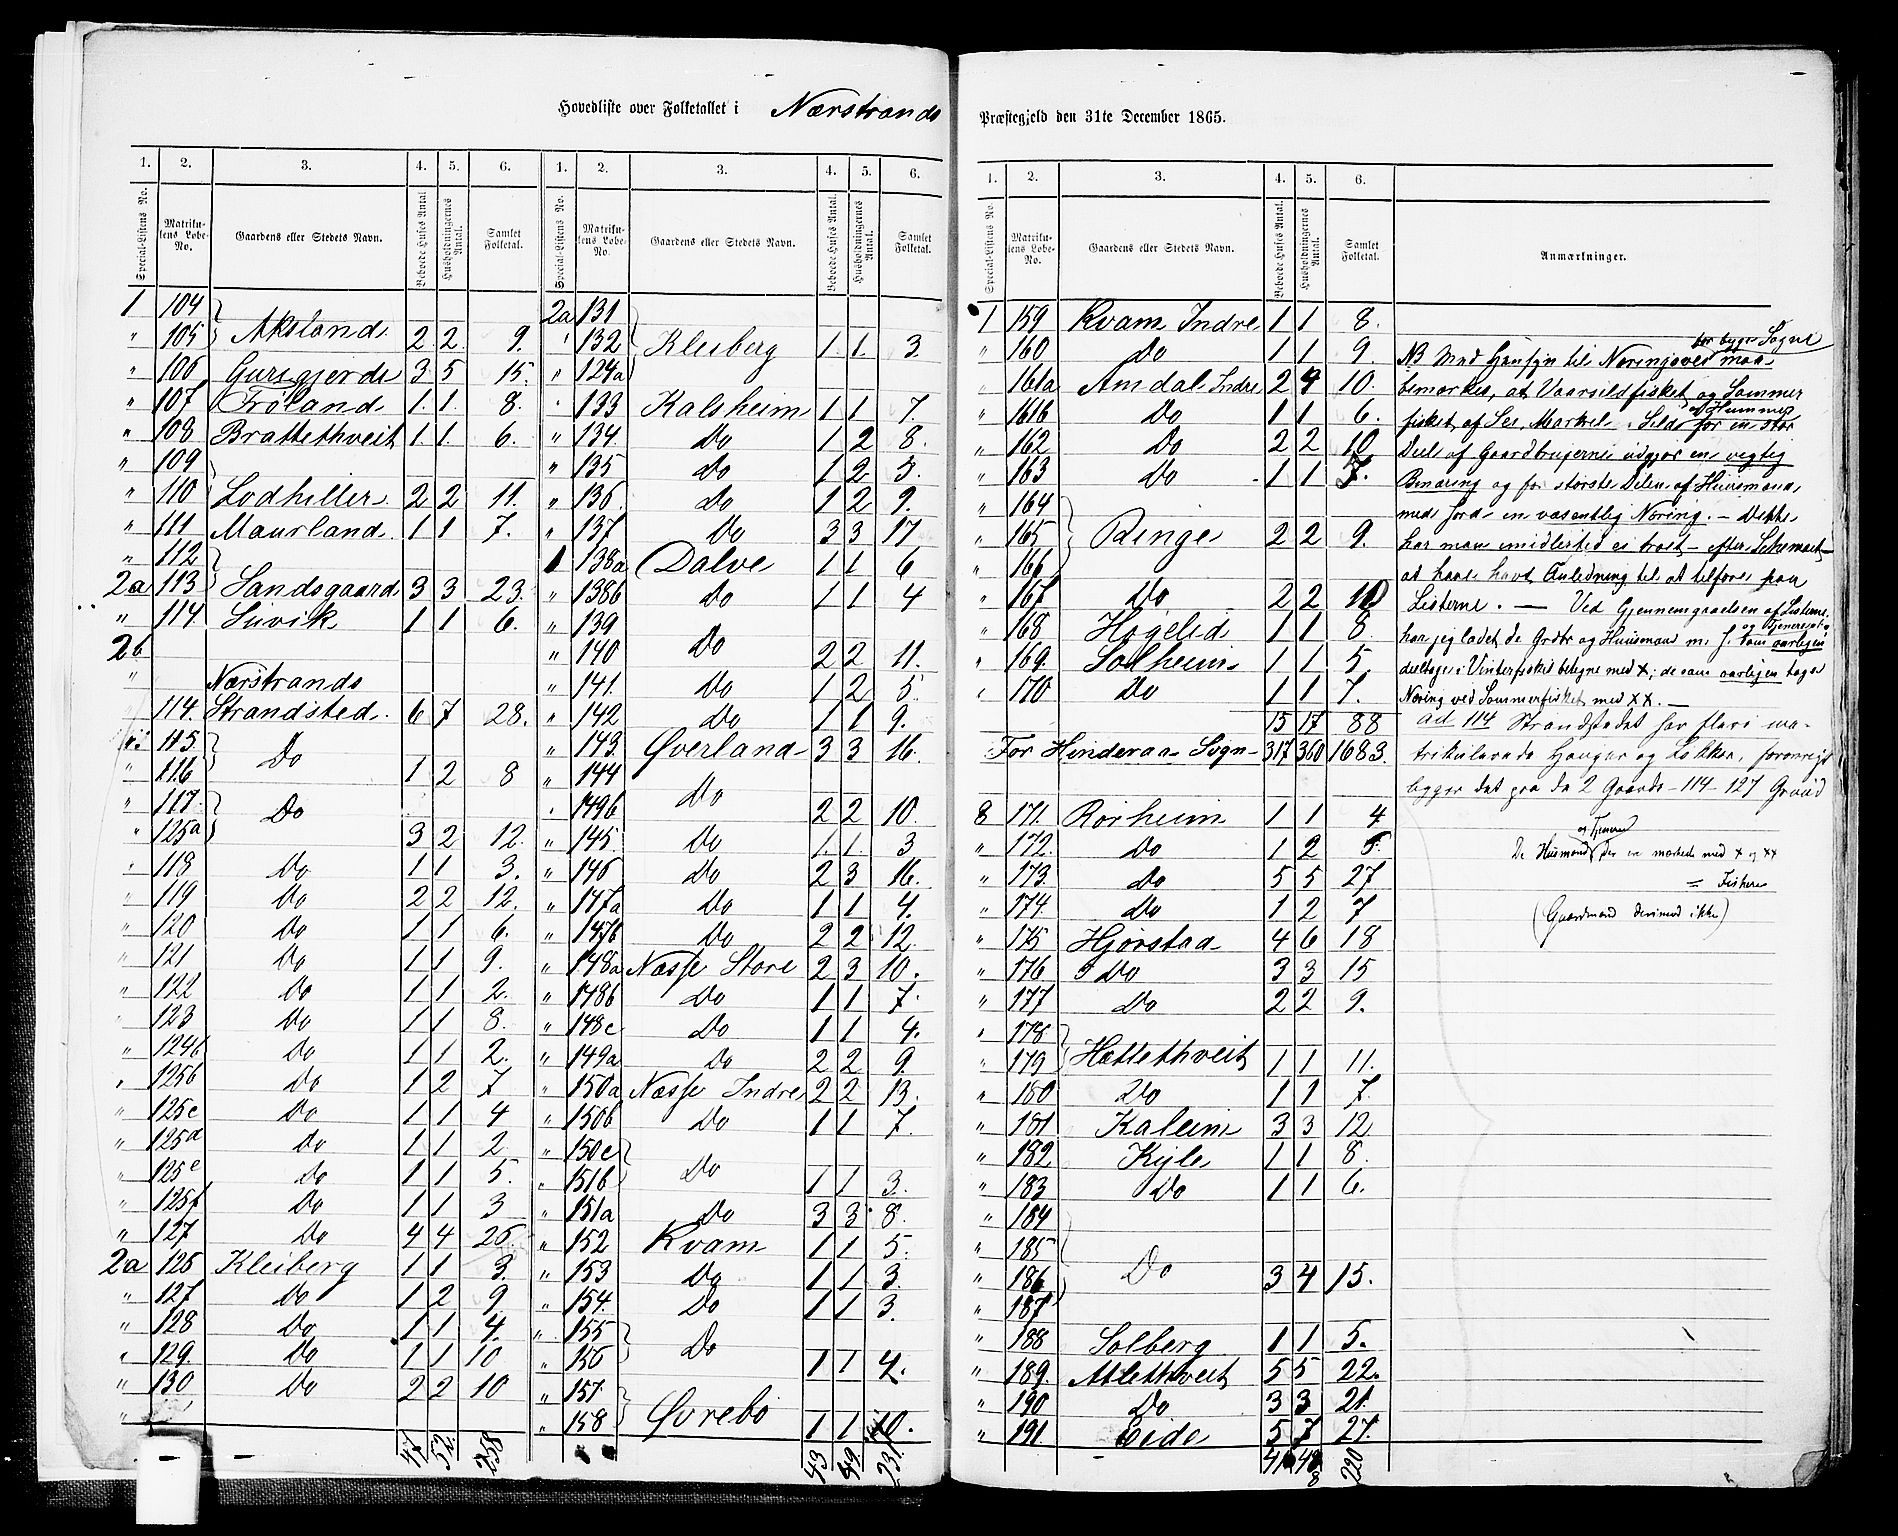 Hovedliste over Folketallet i Nærstrands
Præstegjeld den 31te December 1865.
1. 2. 3. 4. 5. 6. 1. 2. 3. 4. 5. 6.
Special-Listens No. Matrikulens Løbe-No. Gaardens eller Stedets Navn. Beboede Huses Antal. Husholdningernes Antal. Samlet Folketal. Special-Listens No. Matrikulens Løbe-No. Gaardens eller Stedets Navn. Beboede Huses Antal. Husholdningernes Antal. Samlet Folketal.
1 104
" 105 Aksland 2 2 9.
" 106 Gursgjerde 3 5 15.
" 107 Frøland 1. 1. 8.
" 108 Brattethveit 1. 1. 6.
" 109
" 110 Lodhiller 2 2 11.
" 111 Maurland 1 1 7.
" 112
2a 113 Sandsgaard 3 3 23.
" 114 Liuvik 1 1 6.
2b
" Nærstrands
114. Strandsted 6 7 28.
115.
" 116 Do 1 2 8
" 117.
" 125a Do 3 2 12.
" 118 Do 1 1 3.
" 119 Do 2 2 12.
" 120 Do 1 1 6.
" 121 Do 1 1 9.
" 122 Do 1 1 2.
" 123 Do 1 1 8.
" 124b Do 1 1 2.
" 125b Do 1 2 7
" 125c Do 1 1 4
" 125d Do 1 1 2
" 125e Do 1 1 5.
" 125f Do 1 1 3
" 127 Do 4 4 26.
2a 126 Kleiberg 1 1 3.
" 127 Do 1 2 9
" 128 Do 1 1 4.
" 129. Do 1 1 10
" 130 Do 2 2 10
47 52. 258
2a 131
" 132 Kleiberg 1. 1. 3.
" 124a
" 133 Kalsheim 1 1 7.
" 134 Do 1 2 8.
" 135 Do 1 2 5.
" 136 Do 1 2 9.
" 137 Do 3 3 17
1 138a Dalve 1 1 6
" 138b Do 1 1 4
" 139
" 140 Do 2 2 11.
" 141. Do 1 2 5.
" 142 Do 1 1 9.
" 143. Øverland 3 3 16.
" 144
" 149b Do 2 2 10.
" 145 Do 1. 1. 3
" 146 Do 2 3 16.
" 147a Do 1 1 4.
" 147b Do 2 2 12.
" 148a Næsse Store 2 3 10.
" 148b Do 1 1 7.
" 148c Do 1 1 4.
" 149a Do 2 2 9.
" 150a Næsse Indre 2 2 13.
" 150b Do 1 1 7.
" 150c
" 151b Do 1 1 3.
" 151a Do 3 3 8.
" 152 Kvam 1 1 5.
" 153 Do 1 1 3.
" 154. Do 1 1 3.
" 155
" 156 Do 1 1 4.
" 157
" 158 Øvrebø 1 1 10.
43 49 231
1. 2. 3. 4. 5. 6.
Special-Listens No. Matrikulens Løbe-No. Gaardens eller Stedets Navn. Beboede Huses Antal. Husholdningernes Antal. Samlet Folketal. Anmærkninger.
1 159 Kvam Indre 1 1 8.
" 160 Do 1 1 9.
" 161a Amdal Indre 2 4 10.
" 161b Do 1 1 6.
" 162 Do 2 2 10
" 163 Do 1 1 7.
" 164
" 165 Ringe 2 2 9.
" 166
" 167 Do 2 2 10
" 168 Hogelid 1 1 8
" 169. Solheim 1 1 5.
" 170 Do 1 1 7.
15 17 88
For Hinderaa Sogn 317 360 1683.
8 171. Rørheim 1 1 4
" 172. Do 1 2 5.
" 173. Do 5 5 27
" 174. Do 1 2 7
" 175 Hjørstad 4 6 18
" 176 Do 3 3 15
" 177 Do 2 2 9.
" 178
" 179 Hættethveit 1 1 11.
" 180 Do 1 1 7.
" 181 Kaleim 3 3 12
" 182 Kyle 1 1 8.
" 183 Do 1 1 6.
" 184
" 185
" 186 Do 3 4 15.
" 187
" 188 Solberg 1 1 5.
" 189. Atlethveit 5 5 22.
" 190 Do 3 3 21
" 191. Eide 5 7 27.
41 48 220
for begge Sogne
NB Med Hensyn til Næringsvei maa
bemærkes, at Vaarsildfisket og Sommer
fisket af Sei, Markrel, Sild og Hummer for en stor
Deel af Gaardbrugerne udgjør en vegtig
Binæring og for største Delen af Huusmænd
med Jord en væsentlig Næring. — Dette
har man imidlertid ei troet efter Schemaet
at have havt Anledning til at tilføre paa
Listerne. — Ved Gjennemgaaelsen af Listerne
har jeg ladet de Grdbr og Huusmænd m. J. og Tjenere som aarligen
deeltage i Vinterfisket betegne med x; de som aarligen tage
Næring ved Sommerfisket med xx. —
ad 114 Strandstedet har flere ma-
trikulerede Hauger og Løkker, forøvrigt
ligger det paa de 2 Gaarde 114 - 127 Grund
De Husmænd og Tjenere der er mærkede med x og xx
= Fiskere
(Gaardmænd derimod ikke)